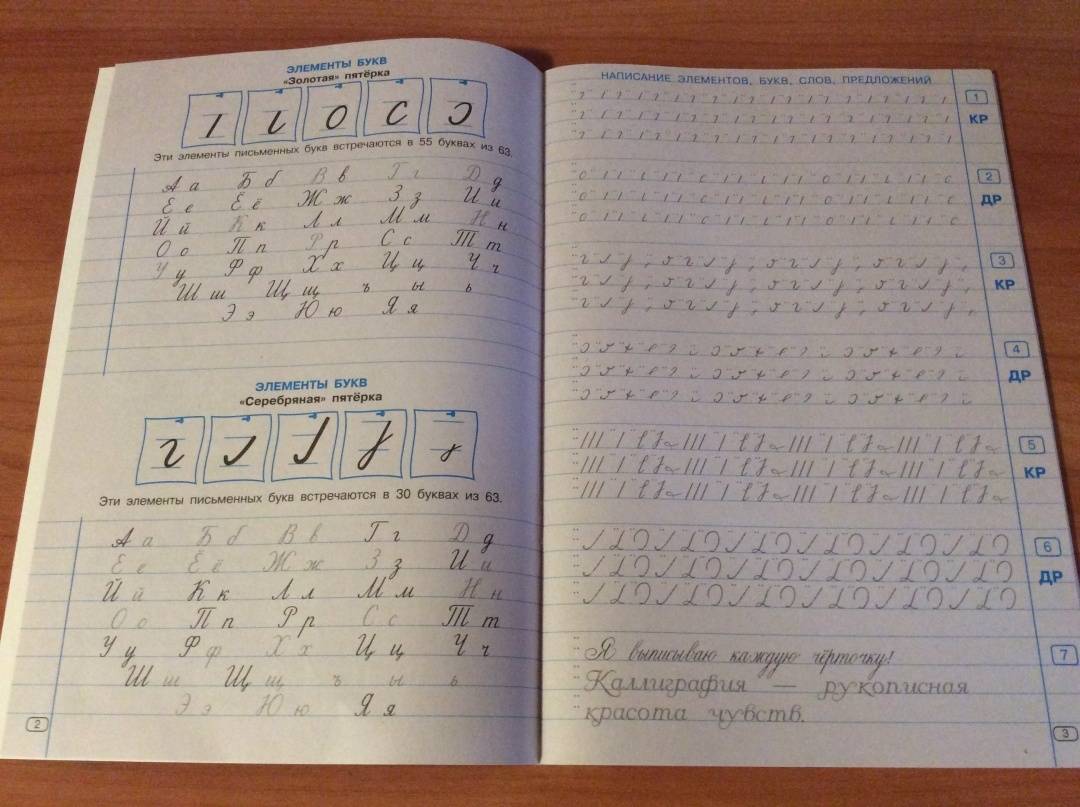 ЭЛЕМЕНТЫ БУКВ
«Золотая» пятёрка
Эти элементы письменных букв встречаются в 55 буквах из 63.
А а Б б В в Г г Д д
Е е Ё ё Ж ж З з И и
Й й К к Л л М м Н н
О о П п Р р С с Т т
У у Ф ф Х х Ц ц Ч ч
Ш ш Щ щ ъ ы ь
Э э Ю ю Я я
ЭЛЕМЕНТЫ БУКВ
«Серебряная» пятёрка
Эти элементы письменных букв встречаются в 30 буквах из 63.
А а Б б В в Г г Д д
Е е Ё ё Ж ж З з И и
Й й К к Л л М м Н н
О о П п Р р С с Т т
У у Ф ф Х х Ц ц Ч ч
Ш ш Щ щ ъ ы ь
Э э Ю ю Я я
2
НАПИСАНИЕ ЭЛЕМЕНТОВ, БУКВ, СЛОВ, ПРЕДЛОЖЕНИЙ
1
КР
2
ДР
3
КР
4
ДР
5
КР
6
ДР
7
Я выписываю каждую чёрточку!
Каллиграфия — рукописная
красота чувств.
3